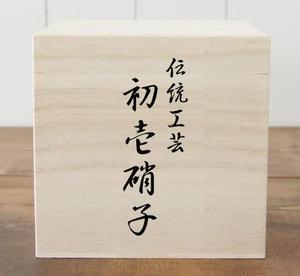 伝統工芸
初壱硝子